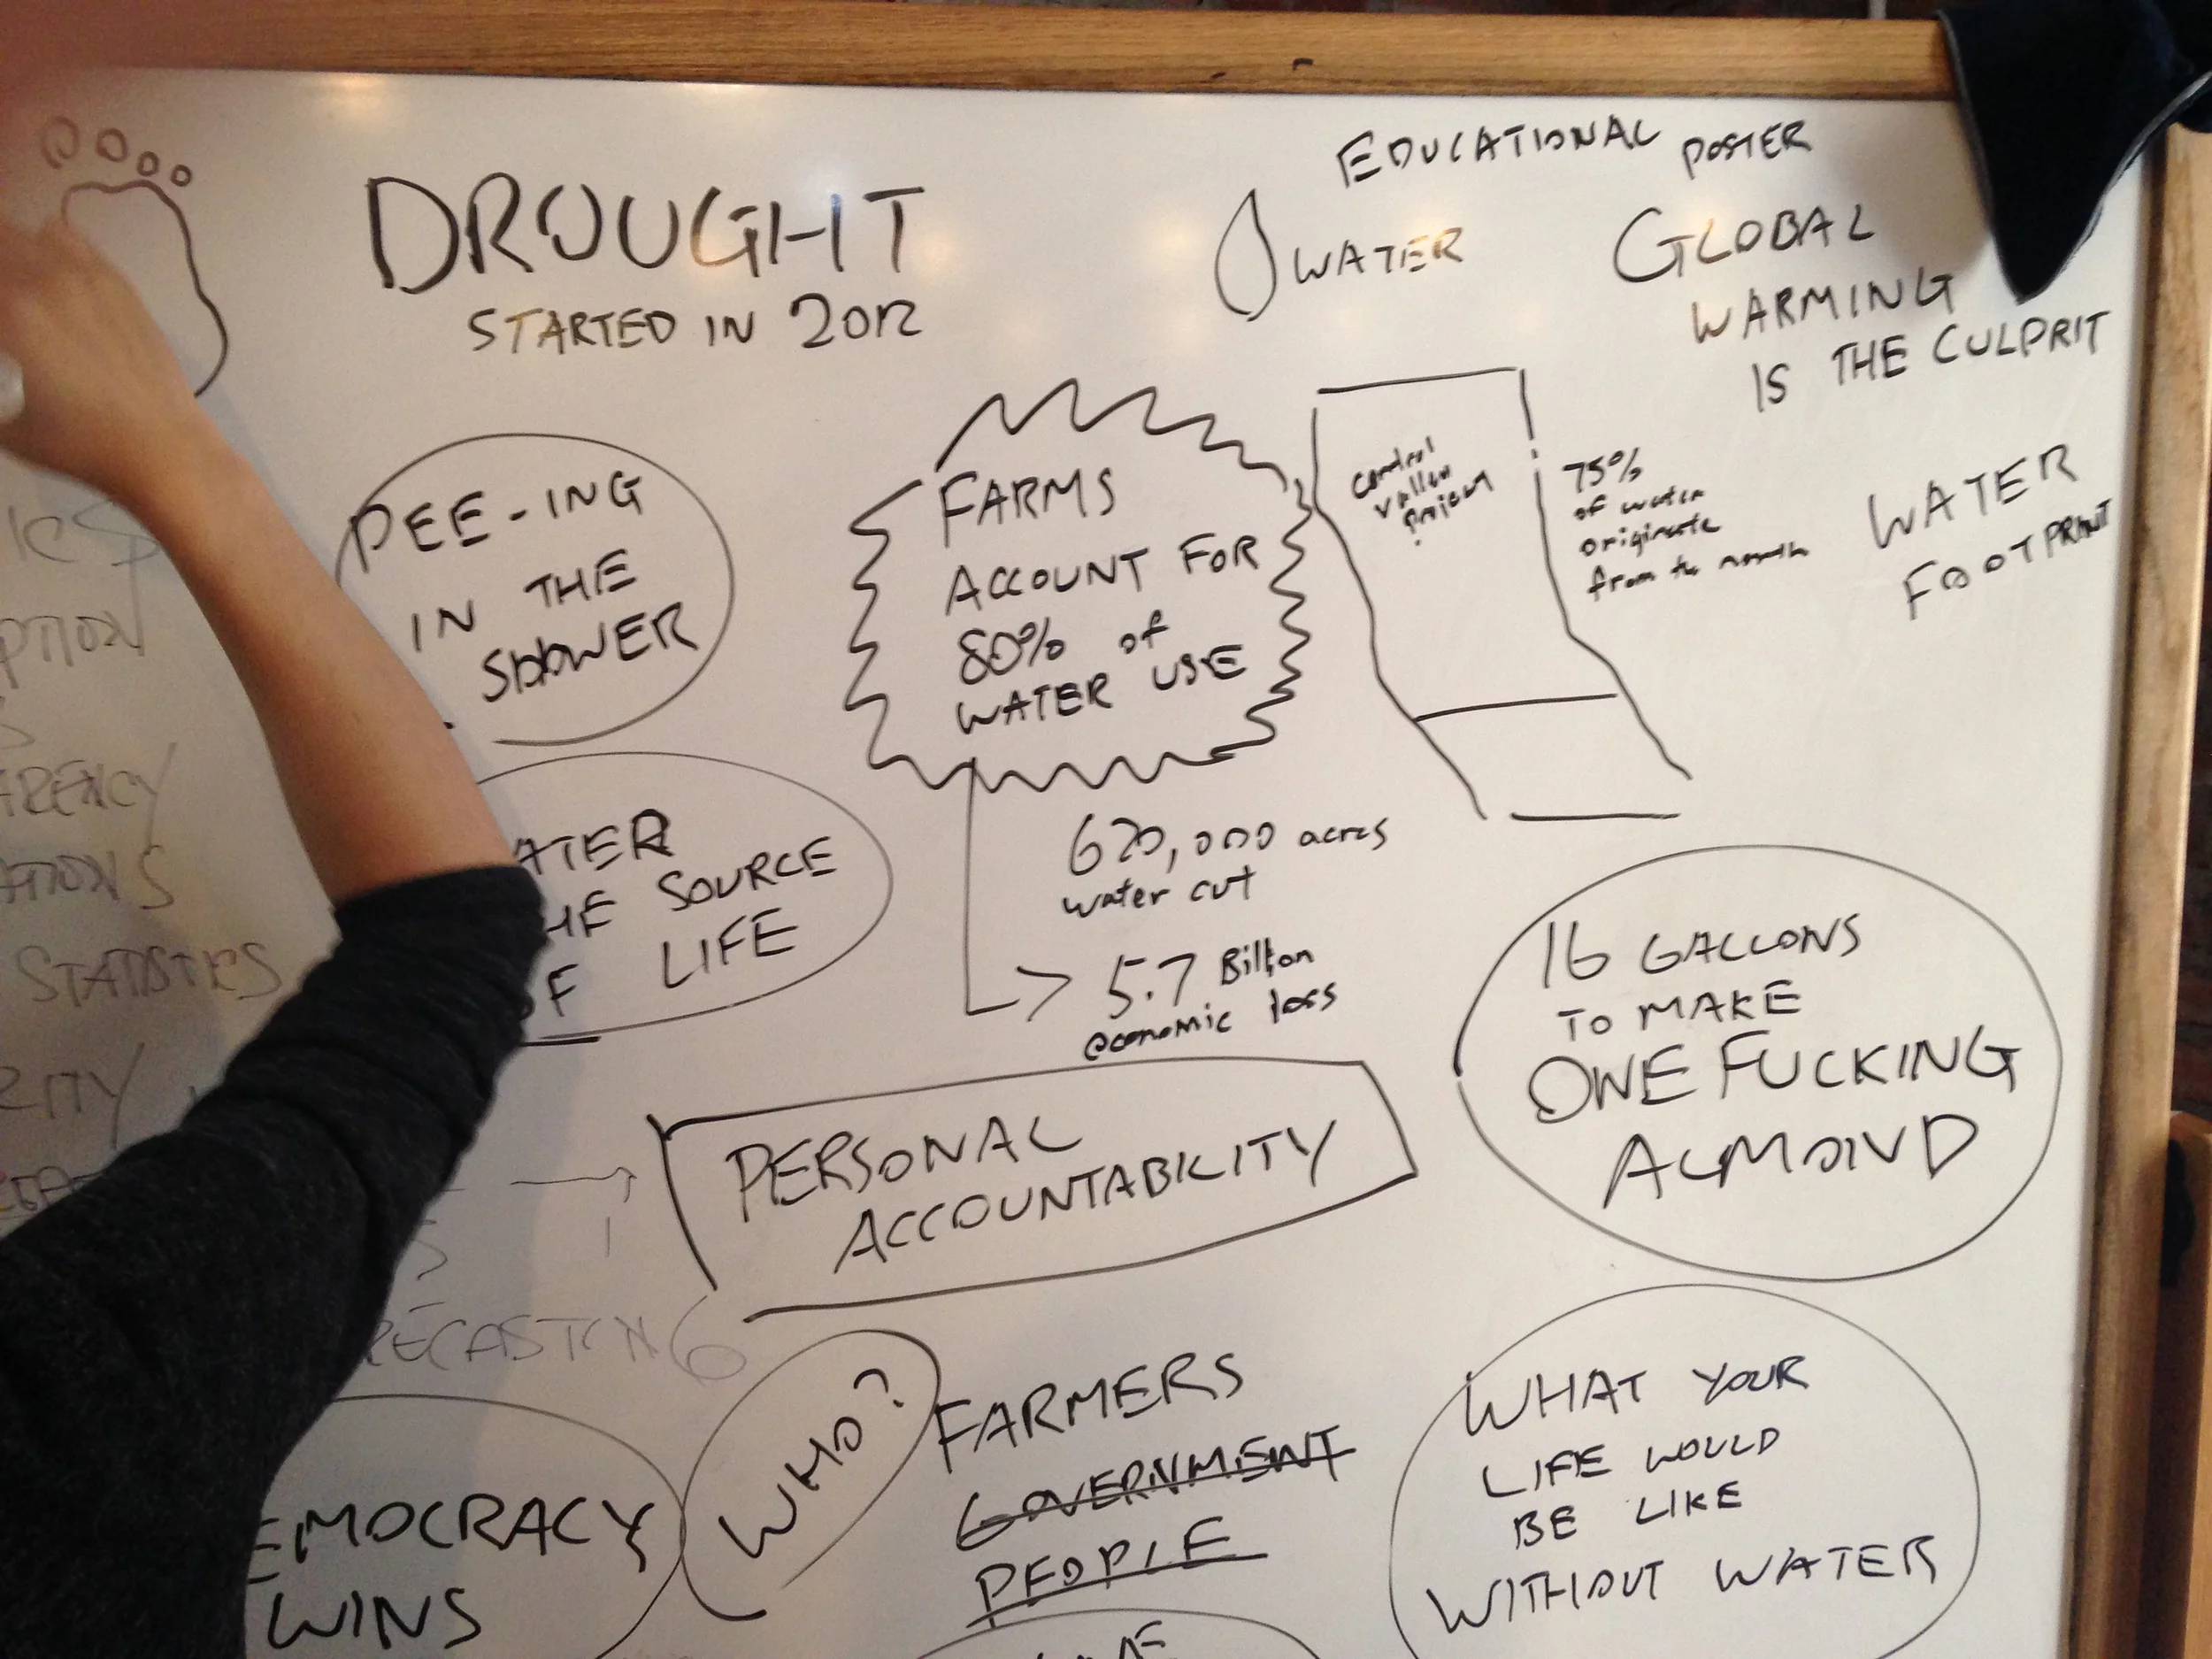 EDUCATIONAL POSTER
DROUGHT
STARTED IN 2012
WATER
GLOBAL
WARMING
IS THE CULPRIT
PEE-ING
IN THE
SHOWER
FARMS
ACCOUNT FOR
80% of
WATER USE
central
valley
project
75%
of water
originate
from the north
WATER
FOOTPRINT
ATER
HE SOURCE
OF LIFE
620,000 acres
water cut
5.7 Billion
economic loss
16 GALLONS
TO MAKE
ONE FUCKING
ALMOND
PERSONAL
ACCOUNTABILITY
STATISTICS
RECASTING
WHO?
FARMERS
GOVERNMENT
PEOPLE
WHAT YOUR
LIFE WOULD
BE LIKE
WITHOUT WATER
EMOCRACY
WINS